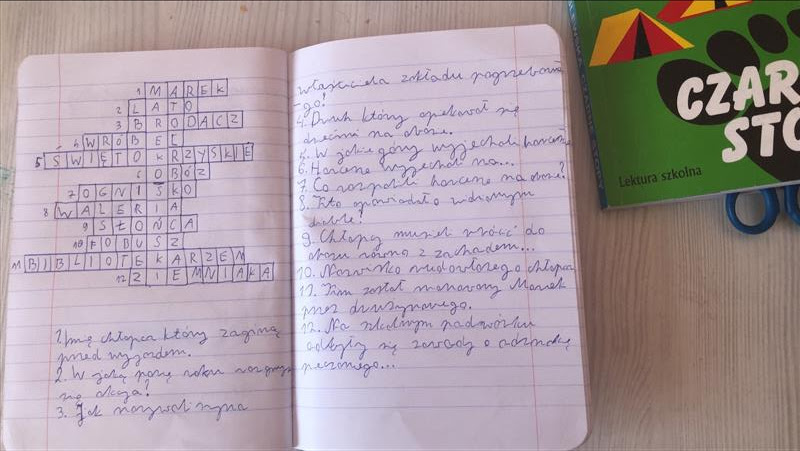 1 MAREK
2 LATO
3 BRODACZ
4 WRÓBEL
5 ŚWIĘTOKRZYSKIE
6 OBÓZ
7 OGNISKO
8 WALERIA
9 SŁOŃCA
10 FOBUSZ
11 BIBLIOTEKARZEM
12 ZIEMNIAKA
1. Imię chłopca który zaginął
przed wyjazdem.
2. W jaką porę roku
się akcja?
3. Jak nazywał
właściciela zakładu pogrzebowe
-go!
4. Druh który opiekował się
dziećmi na obozie.
5. W jakie góry wyjechali harcerze
6. Harcerze wyjechali na...
7. Co rozpalili harcerze na obozie?
8. Kto opowiadał o widzianym
diable?
9. Chłopcy musieli wrócić do
obozu równo z zachodem...
10. Nazwisko chłopca
11. Kim został mianowany Marek
przez drużynowego.
12. Na szkolnym podwórku
odbyły się zawody o
pieczonego...
CZAR
STO
Lektura szkolna